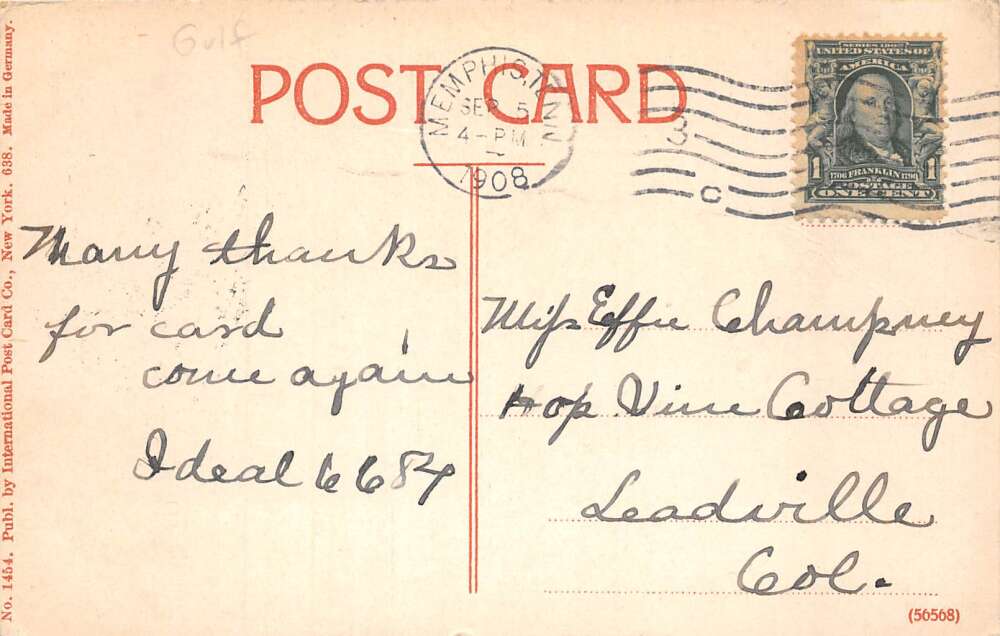 Gulf
POST CARD
MEMPHIS, TENN
SEP 5
4-PM
1908
3
C
SERIES 1902
UNITED STATES OF
AMERICA
1 1706 FRANKLIN 1790 1
POSTAGE
ONE CENT
Many thanks
for card
come again
Ideal 6684
Miss Effie Champney
Hop Vine Cottage
Leadville
Col.
(56568)
No. 1454. Publ. by International Post Card Co., New York. 638. Made in Germany.